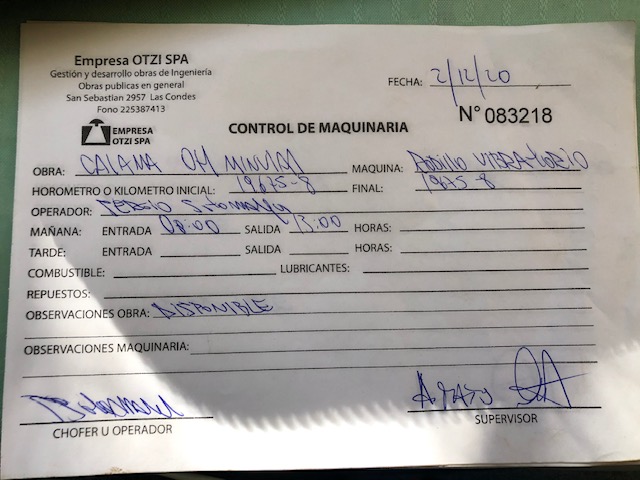 Empresa OTZI SPA
Gestión y desarrollo obras de Ingeniería
Obras publicas en general
San Sebastian 2957 Las Condes
Fono 225387413
EMPRESA
OTZI SPA
FECHA: 2/12/20
CONTROL DE MAQUINARIA
N° 083218
OBRA: CALAMA MAQUINA: RODILLO VIBRATORIO
HOROMETRO O KILOMETRO INICIAL: 1975-8 FINAL: 1975-8
OPERADOR: SERGIO
MAÑANA: ENTRADA 08:00 SALIDA 13:00 HORAS:
TARDE: ENTRADA SALIDA HORAS:
COMBUSTIBLE: LUBRICANTES:
REPUESTOS:
OBSERVACIONES OBRA: DISPONIBLE
OBSERVACIONES MAQUINARIA:
CHOFER U OPERADOR SUPERVISOR